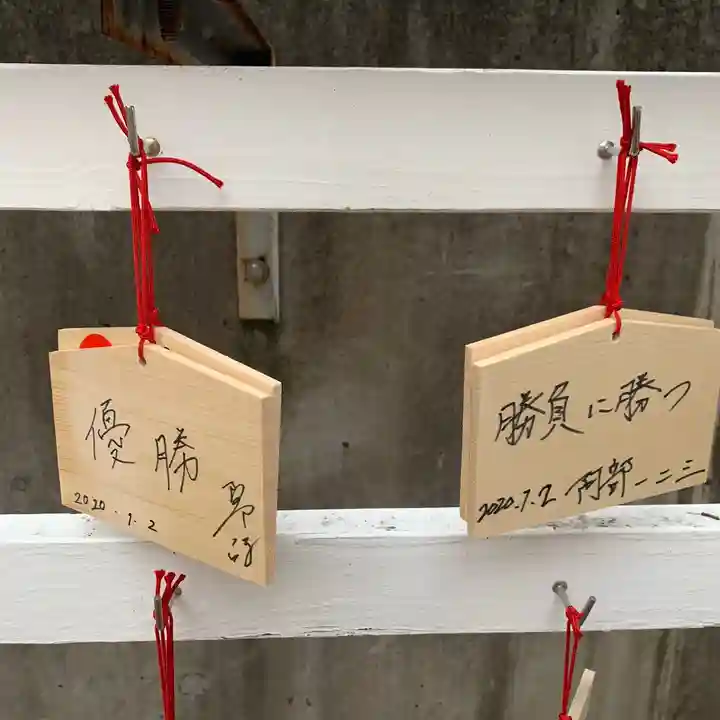 優勝
2020.1.2
勝負に勝つ
2020.1.2 阿部一二三